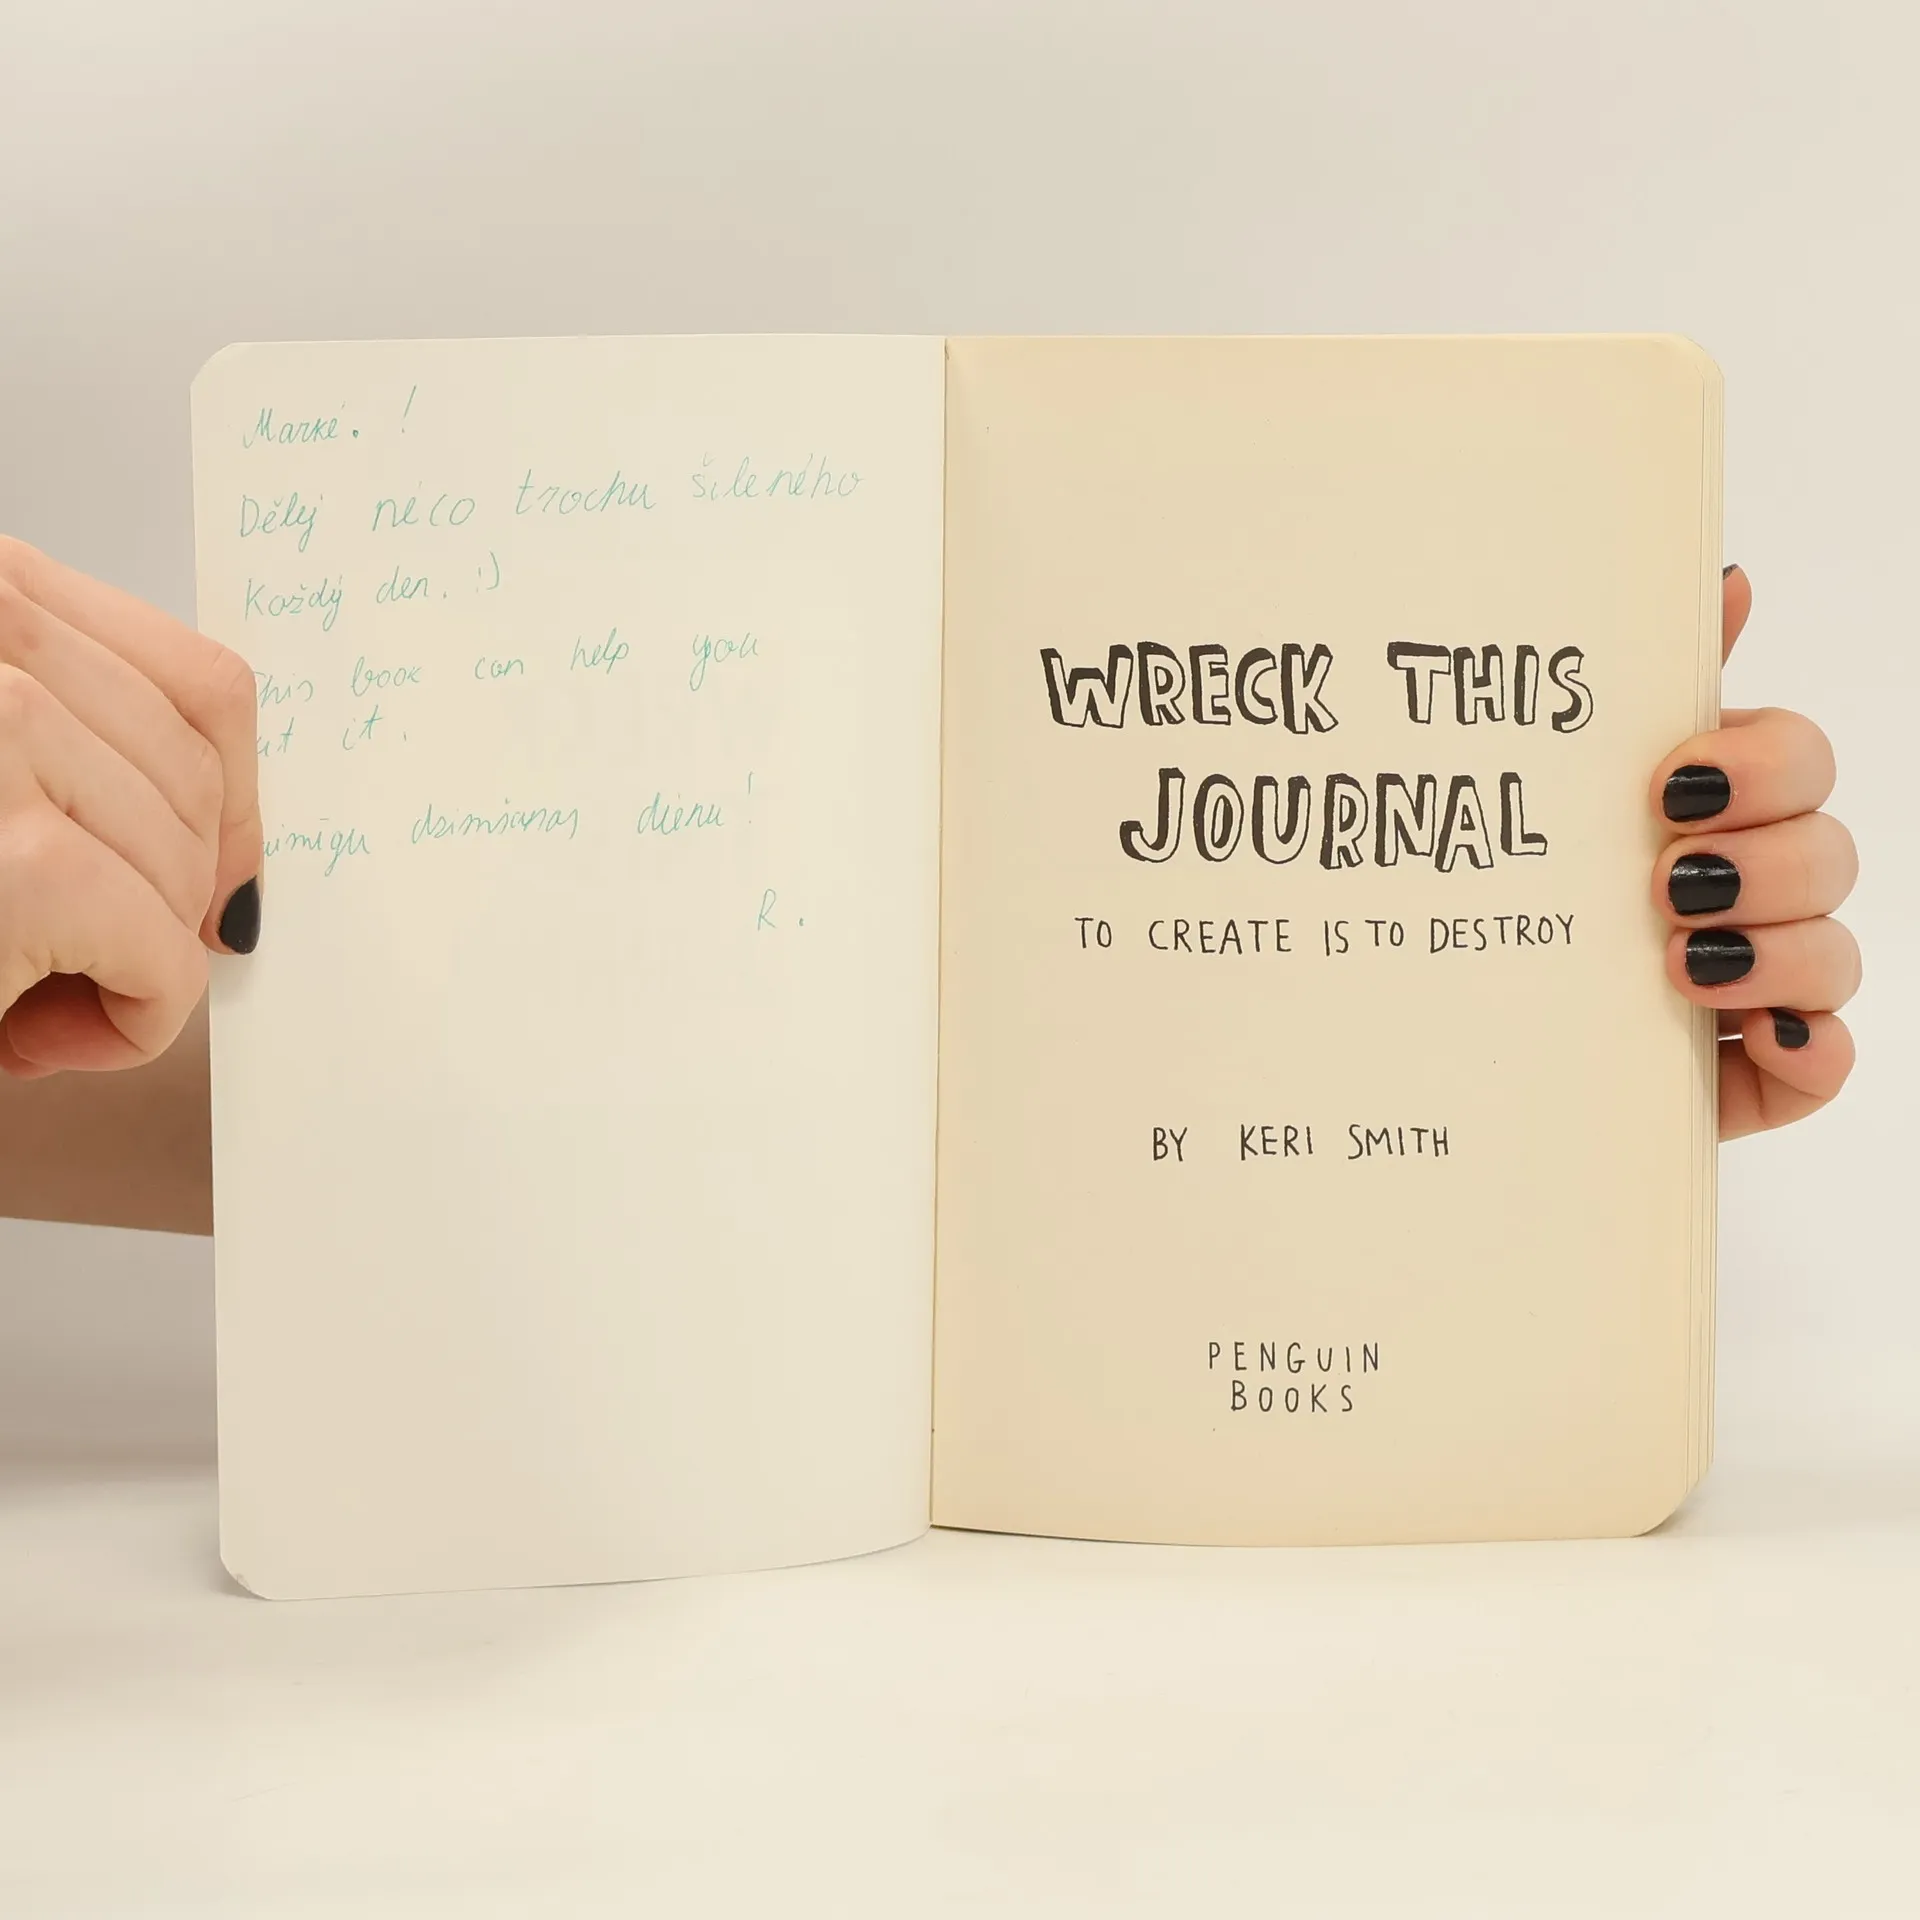 Markē. !
Dělej něco trochu šíleného
Každý den. :)
This book can help you
it.
dzimšanas dienu!
R.
WRECK THIS
JOURNAL
TO CREATE IS TO DESTROY
BY KERI SMITH
PENGUIN
BOOKS